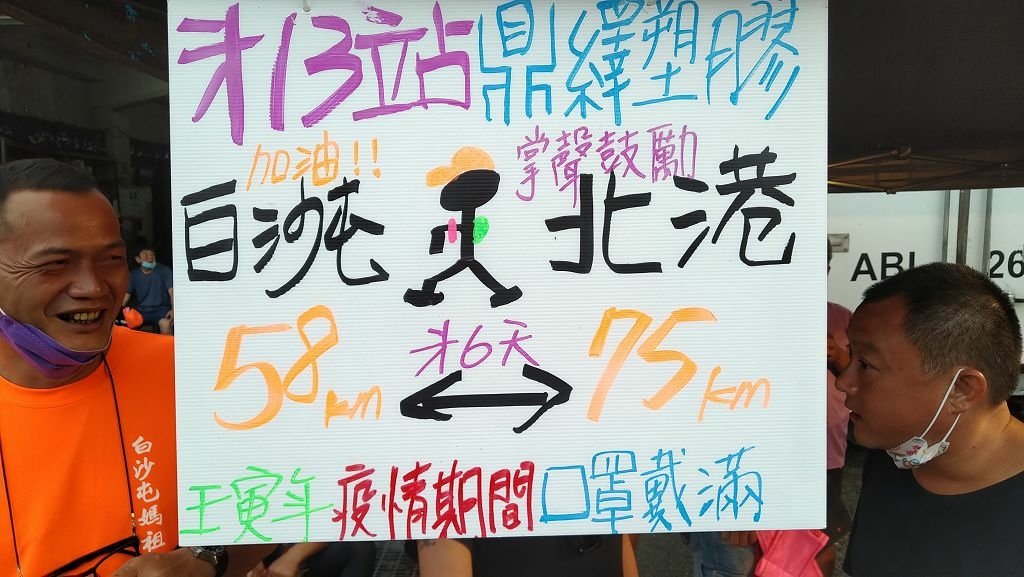 才13站鼎繹塑膠
加油!! 掌聲鼓勵
白沙屯 北港
才6天
58km 75km
壬寅年疫情期間口罩戴滿
白沙屯媽祖
ABL 26